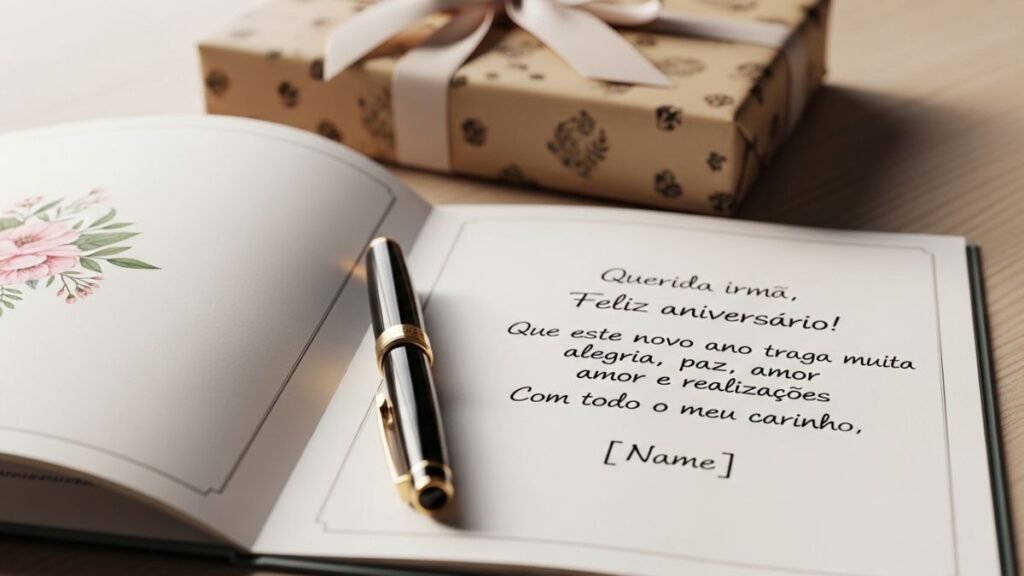 Querida irmã,
Feliz aniversário!
Que este novo ano traga muita
alegria, paz, amor
amor e realizações
Com todo o meu carinho,
[Name]